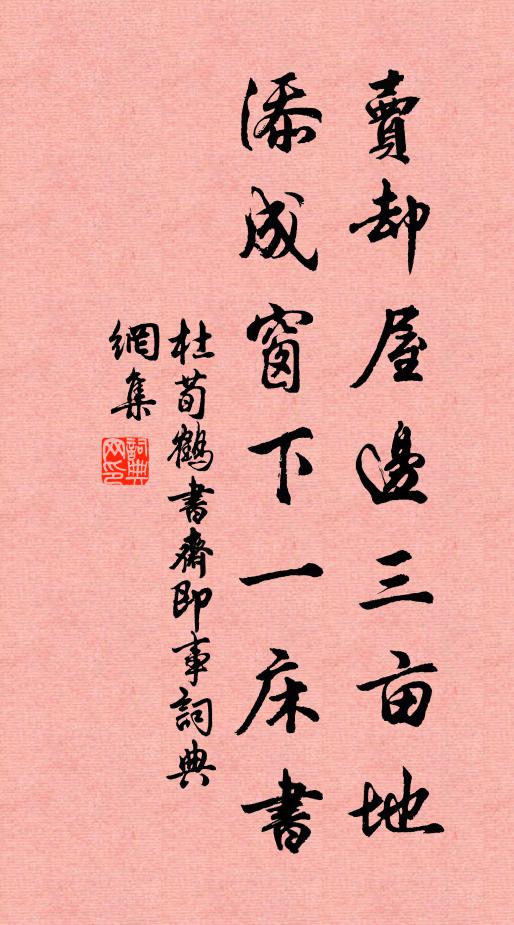 賣却屋邊三亩地
添成窗下一床書
杜荀鶴書齋即事詞典
網集
詞典
网印